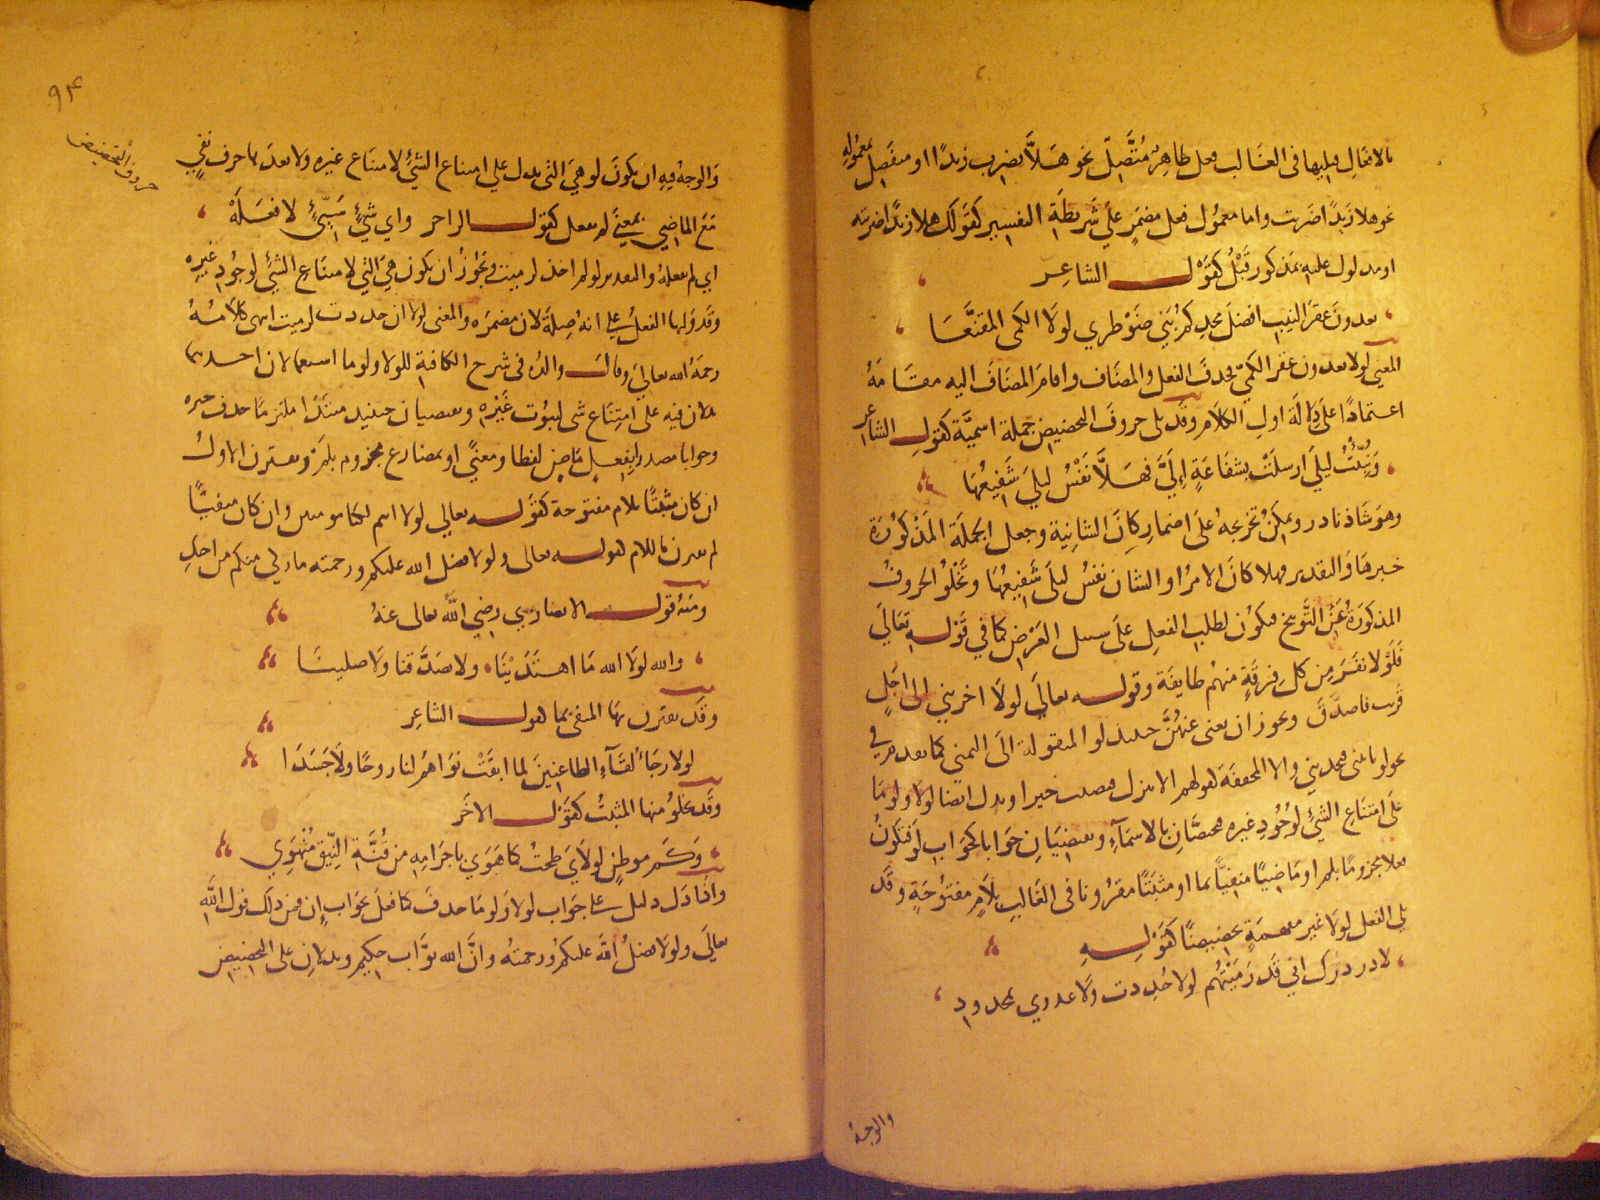 بالافعال فيليها فى الغالب فعل ظاهر متصل نحو هلا تضرب زيدا او منفصل بمعموله
نحو هلا زيدا ضربت واما معمول فعل مضمر على شريطة التفسير كقولك هلا زيدا ضربته
او مدلول عليه بمذكور قبل كقول الشاعر
تعدون عقر النيب افضل مجدكم بني ضوطري لولا الكمي المقنعا
المعنى لولا تعدون عقر الكمي فحذف الفعل والمضاف واقام المضاف اليه مقامه
اعتمادا على دلالة اول الكلام وقد يلي حروف التحضيض جملة اسمية كقول الشاعر
ونبئت ليلى ارسلت بشفاعة إلي فهلا نفس ليلى شفيعها
وهو شاذ نادر ويمكن تخريجه على اضمار كان الشانية وجعل الجملة المذكورة
خبرها والتقدير فهلا كان الامر او الشان نفس ليلى شفيعها وتخلو الحروف
المذكورة عن التوبيخ فتكون لطلب الفعل على سبيل العرض كما في قوله تعالى
فلولا نفر من كل فرقة منهم طايفة وقوله تعالى لولا اخرتني الى اجل
قريب فاصدق ويجوز ان يغني عنهن حينئذ لو المنقولة الى التمني كما تقدم في
نحو لو تاتيني فتحدثني والا المخففة كقولهم الا تنزل فتصيب خيرا ويدل ايضا لولا ولوما
على امتناع الشئ لوجود غيره مختصان بالاسماء ويقتضيان جوابا كجواب لو فتكون
فعلا مجزوما بلم او ماضيا منفيا بما او مثبتا مقرونا فى الغالب بلام مفتوحة وقد
يلي الفعل لولا غير مفهمة تحضيضا كقوله
لا در درك اني قد رميتهم لولا حددت ولا عذري لمحدود
والوجه
٩٤
حروف التحضيض
والوجه فيه ان يكون لو هي التى تدل على امتناع الشئ لامتناع غيره ولا بعدها حرف نفي
مع الماضي بمعنى لم يفعل كقول الراجز واي شئ سيئ لا فعله
اي لم يفعله والتقدير لو لم احد لرميت ويجوز ان يكون هي التي لامتناع الشئ لوجود غيره
وقد وليها الفعل على انه صلة لان مضمره والمعنى لولا ان حددت لرميت انتهى كلامه
رحمه الله تعالى وقال والدُ فى شرح الكافية للولا ولوما استعمالان احدهما
يدلان فيه على امتناع شى لثبوت غيره ويقتضيان حينئذ مبتدا ملتزما حذف خبره
وجوابا مصدرا بفعل ماض لفظا ومعنى او بمضارع مجزوم بلم ويقترن الاول
ان كان مثبتا بلام مفتوحة كقوله تعالى لولا انتم لكنا مومنين وان كان منفيا
لم يقترن باللام كقوله تعالى ولولا فضل الله عليكم ورحمته ما زكي منكم من احد
ومنه قول الانصاري رضي الله تعالى عنه
والله لولا الله ما اهتدينا ولا صدقنا ولا صلينا
وقد يقترن بها المنفي بما كقول الشاعر
لولا رجاء لقاء الظاعنين لما ابقت نواهم لنا روحا ولا جسدا
وقد يخلو منها المثبت كقول الاخر
وكم موطن لولاي طحت كما هوى باجرامه من قنة النيق منهوي
واذا دل دليل على جواب لولا ولوما حذف كما فعل بجواب إن فمن ذلك قول الله
تعالى ولولا فضل الله عليكم ورحمته وان الله تواب حكيم ويدلان على التحضيض